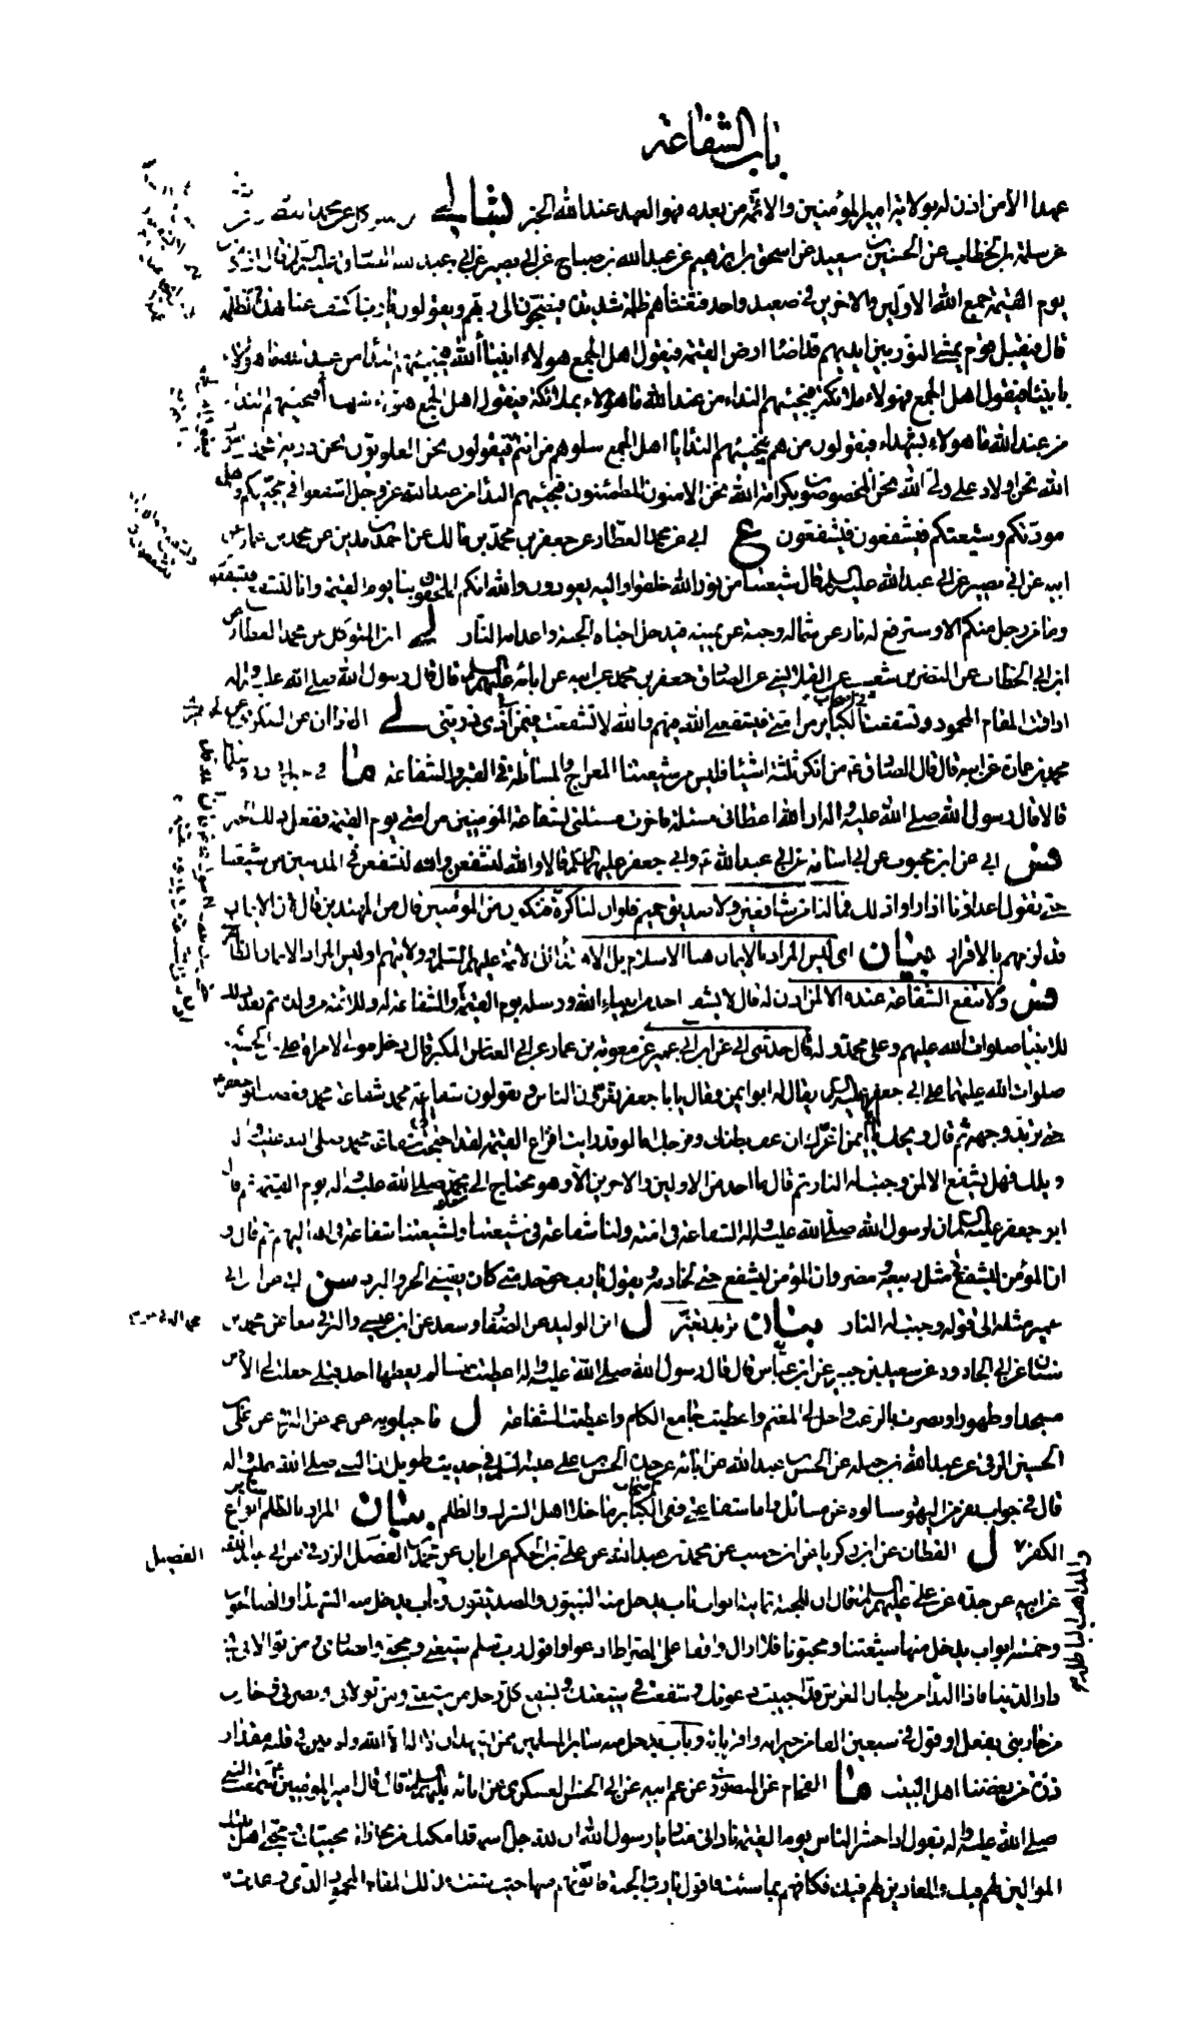 باب الشفاعة
عهدا الا من اذن له بولاية امير المؤمنين والائمة من بعده فهو العهد عند الله الخبر
عن سلمة بن الخطاب عن الحسين بن سعيد عن اسحق بن ابرهيم عن عبد الله بن صباح عن ابي بصير عن ابي عبد الله الصادق عليه السلم قال اذا كان
يوم القيمة جمع الله الاولين والاخرين في صعيد واحد فتغشاهم ظلمة شديدة فيضجون الى ربهم ويقولون يا رب اكشف عنا هذه الظلمة
قال فيقبل قوم يمشي النور بين ايديهم قد اضاء ارض القيمة فيقول اهل الجمع هؤلاء انبياء الله فيجيئهم النداء من عند الله ما هؤلاء
بانبياء فيقول اهل الجمع فهؤلاء ملائكة فيجيئهم النداء من عند الله ما هؤلاء بملائكة فيقول اهل الجمع هؤلاء شهداء فيجيئهم النداء
من عند الله ما هؤلاء بشهداء فيقولون من هم فيجيئهم النداء يا اهل الجمع سلوهم من انتم فيقولون نحن العلويون نحن ذرية محمد رسول
الله نحن اولاد علي ولي الله نحن المخصوصون بكرامة الله نحن الامنون المطمئنون فيجيئهم النداء من عند الله عز وجل اشفعوا في محبيكم واهل
مودتكم وشيعتكم فيشفعون فيشفعون ع ابي عن محمد العطار عن جعفر بن محمد بن مالك عن احمد بن مدين عن محمد بن عمار عن
ابيه عن ابي بصير عن ابي عبد الله عليه السلم قال شيعتنا من نور الله خلقوا واليه يعودون والله انكم لملحقون بنا يوم القيمة وانا لنشفع فنشفع
وما من رجل منكم الا وسترفع له نار عن شماله وجنة عن يمينه فيدخل احباءه الجنة واعداءه النار لي ابن المتوكل عن محمد العطار عن
ابن ابي الخطاب عن النضر بن شعيب عن القلانسي عن الصادق جعفر بن محمد عن ابيه عن ابائه عليهم السلم قال قال رسول الله صلى الله عليه واله
اذا قمت المقام المحمود تشفعت في اصحاب الكبائر من امتي فيشفعني الله فيهم والله لا تشفعت فيمن اذى ذريتي لي
محمد بن عمارة عن ابيه قال قال الصادق ع من انكر ثلثة اشياء فليس من شيعتنا المعراج والمسائلة في القبر والشفاعة ما
قالا قال رسول الله صلى الله عليه واله ان الله اعطاني مسئلة فاخرت مسئلتي لشفاعة المؤمنين من امتي يوم القيمة ففعل ذلك الخبر
فس ابي عن ابن محبوب عن ابي اسامة عن ابي عبد الله ع وابي جعفر عليهما السلم قالا والله لنشفعن والله لنشفعن في المذنبين من شيعتنا
حتى يقول اعداؤنا اذا راوا ذلك فما لنا من شافعين ولا صديق حميم فلو ان لنا كرة فنكون من المؤمنين قال من المهتدين قال لان الايمان
قد لزمهم بالاقرار بيان اي ليس المراد بالايمان هنا الاسلام بل الاهتداء الى الائمة عليهم السلم وولايتهم او ليس المراد الايمان الظاهري
فس ولا تنفع الشفاعة عنده الا لمن اذن له قال لا يشفع احد من انبياء الله ورسله يوم القيمة والشفاعة له وللائمة من ولده ثم بعد ذلك
للانبياء صلوات الله عليهم وعلى محمد وآله قال حدثني ابي عن ابن ابي عمير عن معوية بن عمار عن ابي العباس المكبر قال دخل مولى لامراة علي بن الحسين
صلوات الله عليهما على ابي جعفر عليه السلم يقال له ابو ايمن فقال يا ابا جعفر تغرون الناس وتقولون شفاعة محمد شفاعة محمد فغضب ابو جعفر
حتى تربد وجهه ثم قال ويحك يا ابا ايمن اغرك ان عف بطنك وفرجك اما لو قد رايت افزاع القيمة لقد احتجت الى شفاعة محمد صلى الله عليه واله
ويلك فهل يشفع الا لمن وجبت له النار ثم قال ما احد من الاولين والاخرين الا وهو محتاج الى شفاعة محمد صلى الله عليه واله يوم القيمة ثم قال
ابو جعفر عليه السلم ان لرسول الله صلى الله عليه واله الشفاعة في امته ولنا شفاعة في شيعتنا ولشيعتنا شفاعة في اهاليهم ثم قال و
ان المؤمن ليشفع في مثل ربيعة ومضر وان المؤمن ليشفع حتى لخادمه ويقول يا رب حق خدمتي كان يقيني الحر والبرد سن
عمير مثله الى قوله وجبت له النار بيان تربد تغير ل ابن الوليد عن الصفار وسعد عن ابن عيسى والبرقي معا عن محمد بن
سنان عن ابي الجارود عن سعيد بن جبير عن ابن عباس قال قال رسول الله صلى الله عليه واله اعطيت خمسا لم يعطها احد قبلي جعلت لي الارض
مسجدا وطهورا ونصرت بالرعب واحل لي المغنم واعطيت جوامع الكلم واعطيت الشفاعة ل ماجيلويه عن عمه عن البرقي عن علي بن
الحسين البرقي عن عبد الله بن جبلة عن الحسن بن عبد الله عن ابائه عن جده الحسن بن علي عليه السلم في حديث طويل ان النبي صلى الله عليه واله
قال في جواب نفر من اليهود سالوه عن مسائل واما شفاعتي ففي اصحاب الكبائر ما خلا اهل الشرك والظلم بيان المراد بالظلم انواع
الكفر والمذاهب الباطلة
ل القطان عن ابن زكريا عن ابن حبيب عن محمد بن عبد الله عن علي بن الحكم عن ابان عن محمد بن الفضل الزرقي عن ابي عبد الله
الفضيل
عن ابيه عن جده عن علي عليهم السلم قال ان للجنة ثمانية ابواب باب يدخل منه النبيون والصديقون وباب يدخل منه الشهداء والصالحون
وخمسة ابواب يدخل منها شيعتنا ومحبونا فلا ازال واقفا على الصراط ادعو واقول رب سلم شيعتي ومحبي وانصاري ومن توالاني في
دار الدنيا فاذا النداء من بطنان العرش قد اجيبت دعوتك وشفعت في شيعتك ويشفع كل رجل من شيعتي ومن تولاني ونصرني وحارب
من حاربني بفعل او قول في سبعين الفا من جيرانه واقربائه وباب يدخل منه سائر المسلمين ممن يشهد ان لا اله الا الله ولم يكن في قلبه مقدار
ذرة من بغضنا اهل البيت ما الفحام عن المنصوري عن عم ابيه عن ابي الحسن العسكري عن ابائه عليهم السلم قال قال امير المؤمنين سمعت النبي
صلى الله عليه واله يقول اذا حشر الناس يوم القيمة نادى مناد يا رسول الله ان الله جل اسمه قد امكنك من مجازاة محبيك ومحبي اهل بيتك
الموالين لهم فيك والمعادين لهم فيك فكافهم بما شئت فاقول يا رب الجنة فابوئهم منها حيث شئت فذلك المقام المحمود الذي وعدت